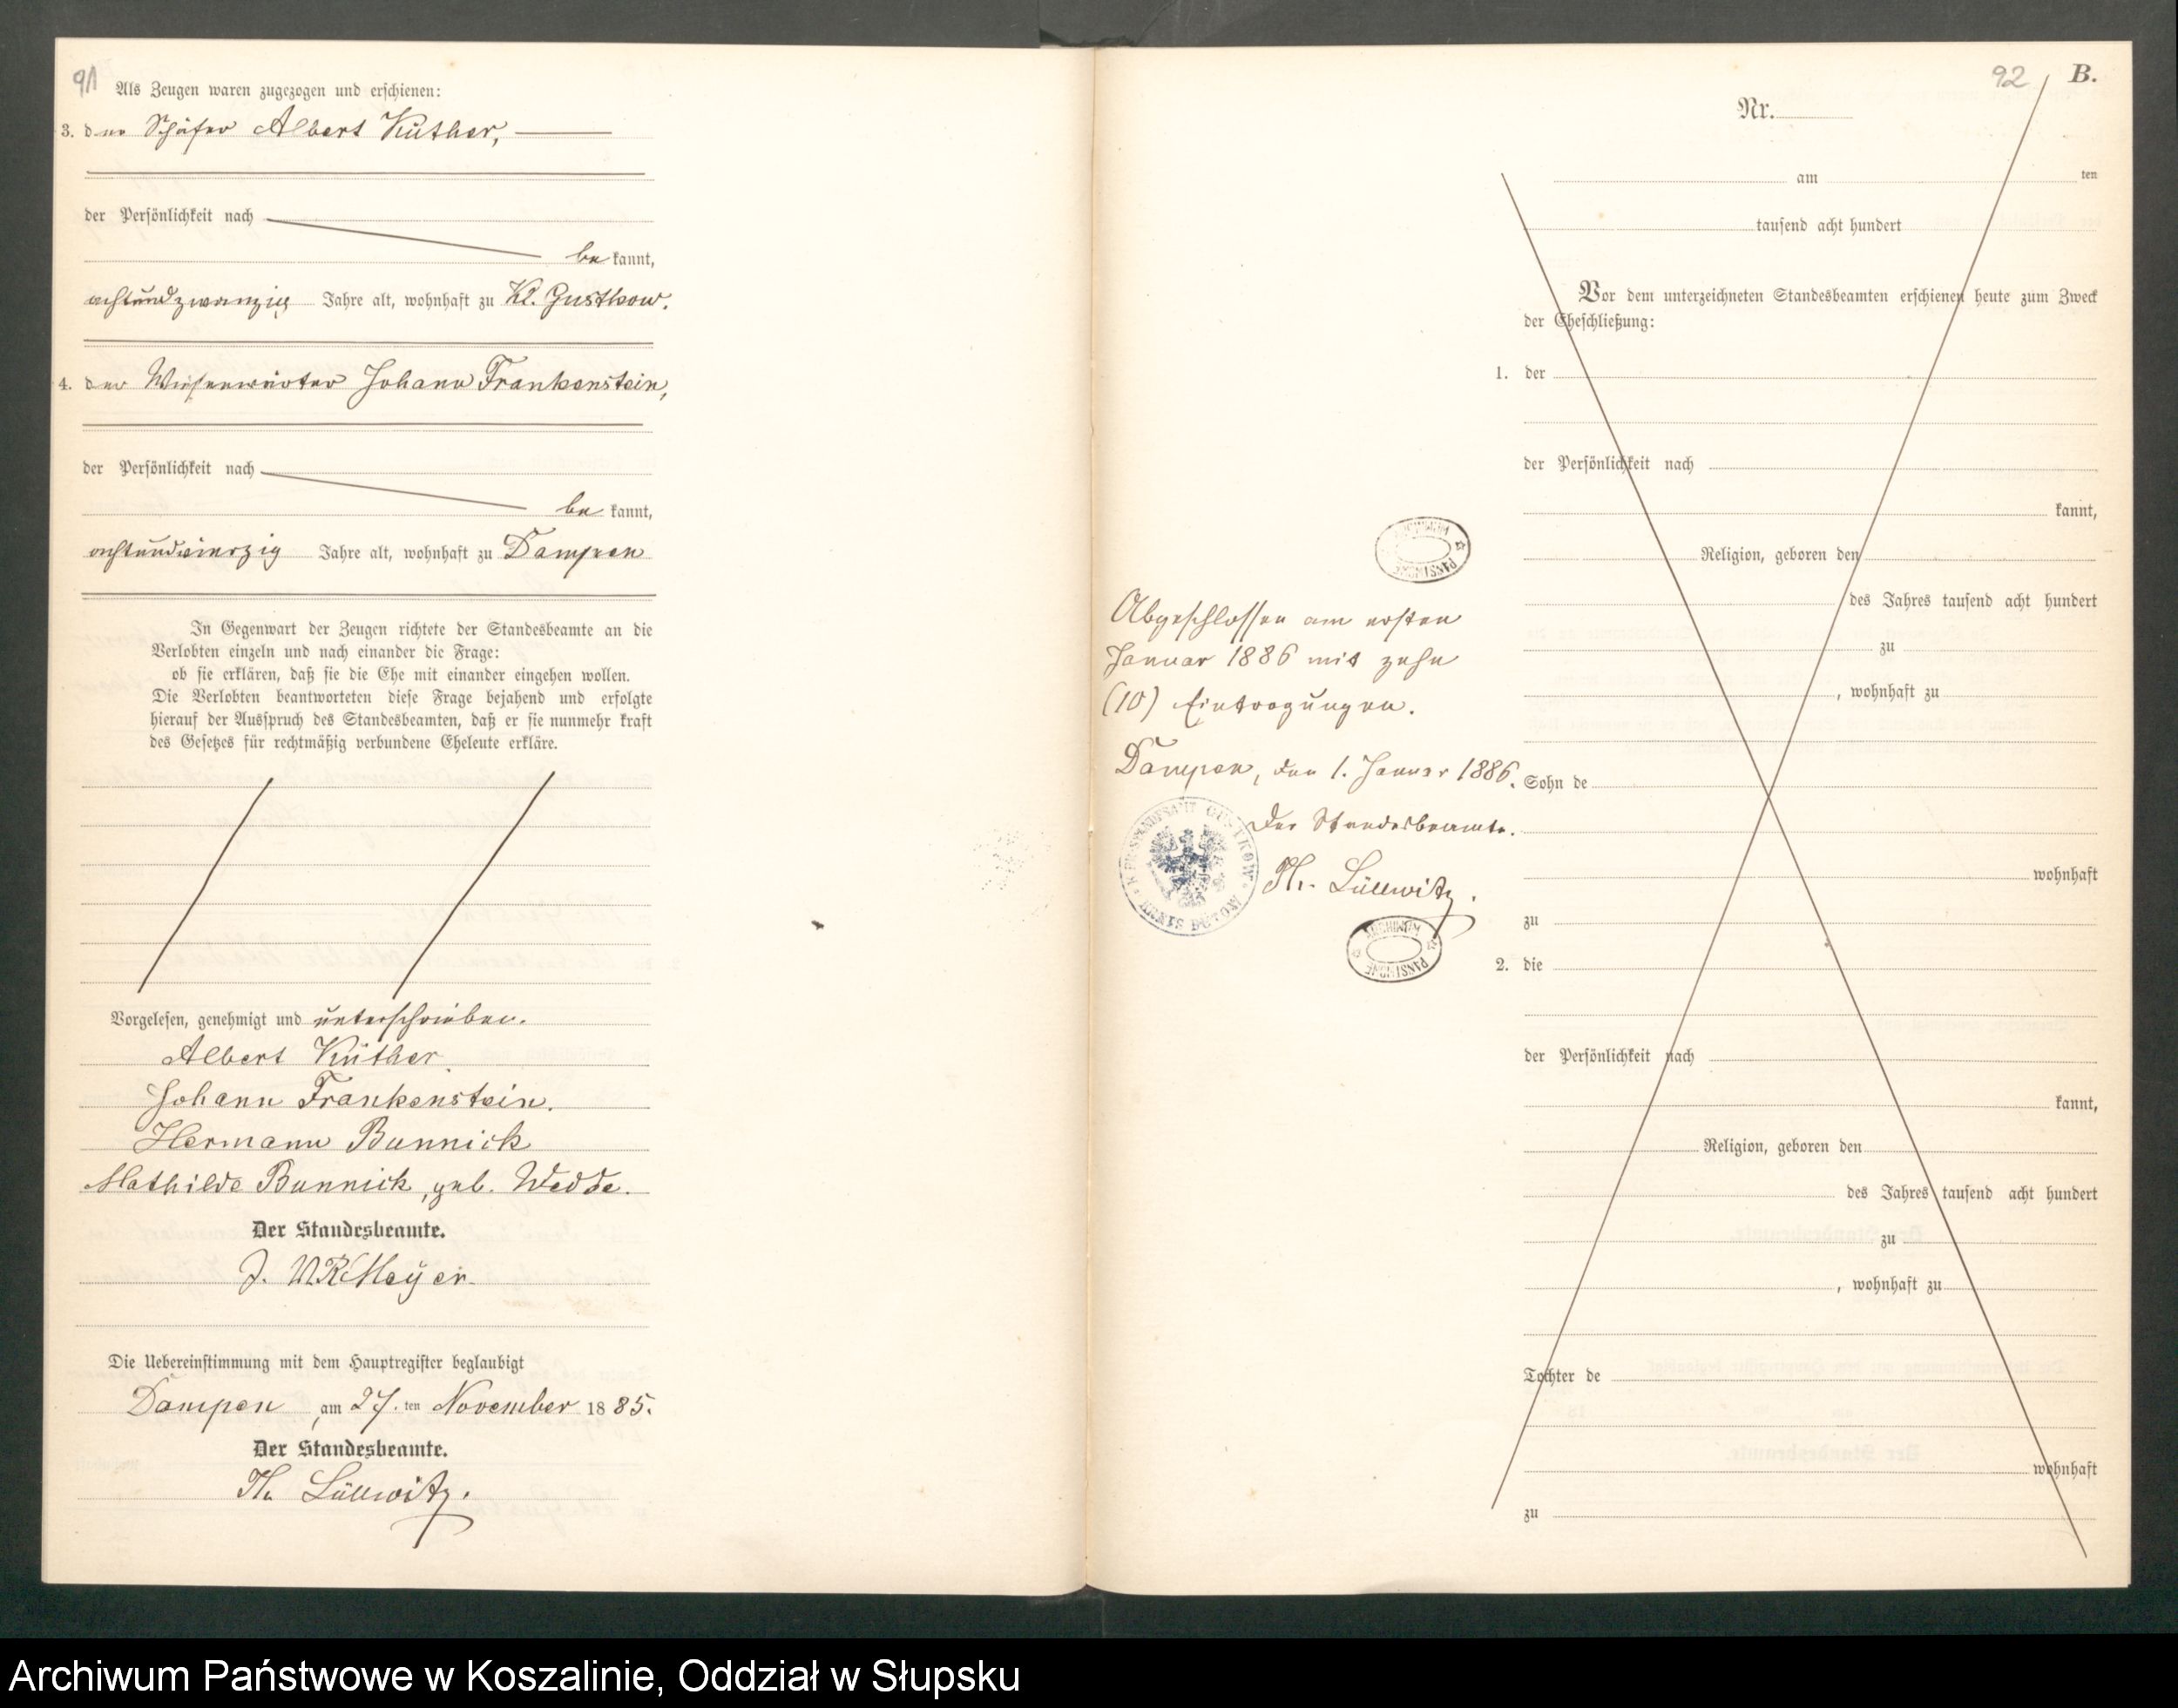 91
Als Zeugen waren zugezogen und erschienen:
3. der Schäfer Albert Küther,
der Persönlichkeit nach
be kannt,
achtundzwanzig Jahre alt, wohnhaft zu Kl. Gustkow.
4. der Wiesenwärter Johann Frankenstein,
der Persönlichkeit nach
be kannt,
achtundvierzig Jahre alt, wohnhaft zu Dampen
In Gegenwart der Zeugen richtete der Standesbeamte an die
Verlobten einzeln und nach einander die Frage:
ob sie erklären, daß sie die Ehe mit einander eingehen wollen.
Die Verlobten beantworteten diese Frage bejahend und erfolgte
hierauf der Ausspruch des Standesbeamten, daß er sie nunmehr kraft
des Gesetzes für rechtmäßig verbundene Eheleute erkläre.
Vorgelesen, genehmigt und unterschrieben.
Albert Küther.
Johann Frankenstein.
Hermann Bunnick
Mathilde Bunnick, geb. Wedde.
Der Standesbeamte.
Meyer.
Die Uebereinstimmung mit dem Hauptregister beglaubigt
Dampen, am 27. ten November 1885.
Der Standesbeamte.
Th. Lüllwitz.
92 B.
Nr.
am ten
tausend acht hundert
Vor dem unterzeichneten Standesbeamten erschienen heute zum Zweck
der Eheschließung:
1. der
der Persönlichkeit nach
kannt,
Religion, geboren den
des Jahres tausend acht hundert
zu
, wohnhaft zu
Sohn de
wohnhaft
zu
2. die
der Persönlichkeit nach
kannt,
Religion, geboren den
des Jahres tausend acht hundert
zu
, wohnhaft zu
Tochter de
wohnhaft
zu
ARCHIWUM PAŃSTWOWE
Abgeschlossen am ersten
Januar 1886 mit zehn
(10) Eintragungen.
Dampen, den 1. Januar 1886.
Der Standesbeamte.
Th. Lüllwitz.
STANDESAMT GUSTKOW
KREIS BÜTOW
ARCHIWUM PAŃSTWOWE
Archiwum Państwowe w Koszalinie, Oddział w Słupsku